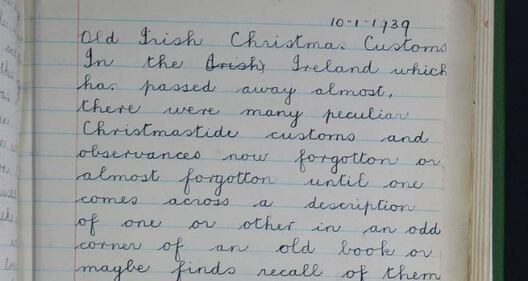 10-1-1939
Old Irish Christmas Customs
In the Irish, Ireland which
has passed away almost,
there were many peculiar
Christmastide customs and
observances now forgotton or
almost forgotton until one
comes across a description
of one or other in an odd
corner of an old book or
maybe finds recall of them